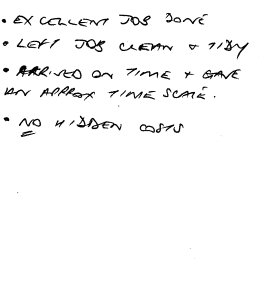 • EXCELLENT JOB DONE
• LEFT JOB CLEAN & TIDY
• ARRIVED ON TIME & GAVE
AN APPROX TIME SCALE.
• NO HIDDEN COSTS